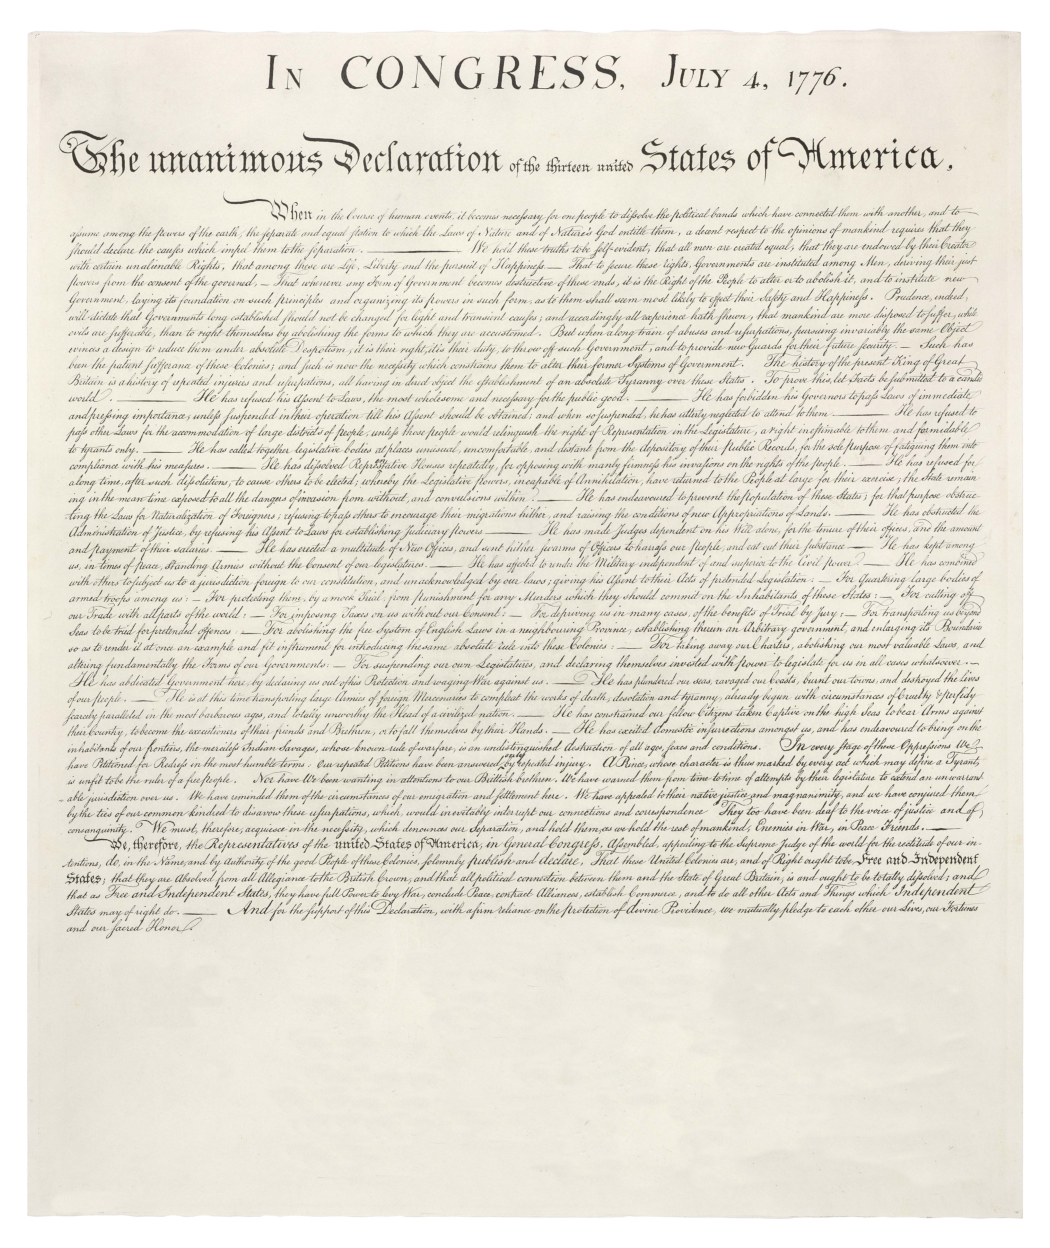 In CONGRESS, July 4, 1776.
The unanimous Declaration of the thirteen united States of America.
When in the Course of human events, it becomes necessary for one people to dissolve the political bands which have connected them with another, and to
assume among the powers of the earth, the separate and equal station to which the Laws of Nature and of Nature's God entitle them, a decent respect to the opinions of mankind requires that they
should declare the causes which impel them to the separation. ——— We hold these truths to be self-evident, that all men are created equal, that they are endowed by their Creator
with certain unalienable Rights, that among these are Life, Liberty and the pursuit of Happiness — That to secure these rights, Governments are instituted among Men, deriving their just
powers from the consent of the governed, — That whenever any Form of Government becomes destructive of these ends, it is the Right of the People to alter or to abolish it, and to institute new
Government, laying its foundation on such principles and organizing its powers in such form, as to them shall seem most likely to effect their Safety and Happiness. Prudence, indeed,
will dictate that Governments long established should not be changed for light and transient causes; and accordingly all experience hath shewn, that mankind are more disposed to suffer, while
evils are sufferable, than to right themselves by abolishing the forms to which they are accustomed. But when a long train of abuses and usurpations, pursuing invariably the same Object
evinces a design to reduce them under absolute Despotism, it is their right, it is their duty, to throw off such Government, and to provide new Guards for their future security. — Such has
been the patient sufferance of these Colonies; and such is now the necessity which constrains them to alter their former Systems of Government. The history of the present King of Great
Britain is a history of repeated injuries and usurpations, all having in direct object the establishment of an absolute Tyranny over these States. To prove this, let Facts be submitted to a candid
world. ——— He has refused his Assent to Laws, the most wholesome and necessary for the public good. ——— He has forbidden his Governors to pass Laws of immediate
and pressing importance, unless suspended in their operation till his Assent should be obtained; and when so suspended, he has utterly neglected to attend to them. ——— He has refused to
pass other Laws for the accommodation of large districts of people, unless those people would relinquish the right of Representation in the Legislature, a right inestimable to them and formidable
to tyrants only. ——— He has called together legislative bodies at places unusual, uncomfortable, and distant from the depository of their public Records, for the sole purpose of fatiguing them into
compliance with his measures. ——— He has dissolved Representative Houses repeatedly, for opposing with manly firmness his invasions on the rights of the people. ——— He has refused for
a long time, after such dissolutions, to cause others to be elected; whereby the Legislative powers, incapable of Annihilation, have returned to the People at large for their exercise; the State remain-
ing in the mean time exposed to all the dangers of invasion from without, and convulsions within. ——— He has endeavoured to prevent the population of these States; for that purpose obstruc-
ting the Laws for Naturalization of Foreigners; refusing to pass others to encourage their migrations hither, and raising the conditions of new Appropriations of Lands. ——— He has obstructed the
Administration of Justice, by refusing his Assent to Laws for establishing Judiciary powers. ——— He has made Judges dependent on his Will alone, for the tenure of their offices, and the amount
and payment of their salaries. ——— He has erected a multitude of New Offices, and sent hither swarms of Officers to harrass our people, and eat out their substance. ——— He has kept among
us, in times of peace, Standing Armies without the Consent of our legislatures. ——— He has affected to render the Military independent of and superior to the Civil power. ——— He has combined
with others to subject us to a jurisdiction foreign to our constitution, and unacknowledged by our laws; giving his Assent to their Acts of pretended Legislation: — For Quartering large bodies of
armed troops among us: — For protecting them, by a mock Trial, from punishment for any Murders which they should commit on the Inhabitants of these States: — For cutting off
our Trade with all parts of the world: — For imposing Taxes on us without our Consent: — For depriving us in many cases, of the benefits of Trial by Jury: — For transporting us beyond
Seas to be tried for pretended offences — For abolishing the free System of English Laws in a neighbouring Province, establishing therein an Arbitrary government, and enlarging its Boundaries
so as to render it at once an example and fit instrument for introducing the same absolute rule into these Colonies: — For taking away our Charters, abolishing our most valuable Laws, and
altering fundamentally the Forms of our Governments: — For suspending our own Legislatures, and declaring themselves invested with power to legislate for us in all cases whatsoever. —
He has abdicated Government here, by declaring us out of his Protection and waging War against us. — He has plundered our seas, ravaged our Coasts, burnt our towns, and destroyed the lives
of our people. — He is at this time transporting large Armies of foreign Mercenaries to compleat the works of death, desolation and tyranny, already begun with circumstances of Cruelty & perfidy
scarcely paralleled in the most barbarous ages, and totally unworthy the Head of a civilized nation. ——— He has constrained our fellow Citizens taken Captive on the high Seas to bear Arms against
their Country, to become the executioners of their friends and Brethren, or to fall themselves by their Hands. — He has excited domestic insurrections amongst us, and has endeavoured to bring on the
inhabitants of our frontiers, the merciless Indian Savages, whose known rule of warfare, is an undistinguished destruction of all ages, sexes and conditions. In every stage of these Oppressions We
have Petitioned for Redress in the most humble terms: Our repeated Petitions have been answered only by repeated injury. A Prince, whose character is thus marked by every act which may define a Tyrant,
is unfit to be the ruler of a free people. Nor have We been wanting in attentions to our Brittish brethren. We have warned them from time to time of attempts by their legislature to extend an unwarrant-
able jurisdiction over us. We have reminded them of the circumstances of our emigration and settlement here. We have appealed to their native justice and magnanimity, and we have conjured them
by the ties of our common kindred to disavow these usurpations, which, would inevitably interrupt our connections and correspondence They too have been deaf to the voice of justice and of
consanguinity. We must, therefore, acquiesce in the necessity, which denounces our Separation, and hold them, as we hold the rest of mankind, Enemies in War, in Peace Friends. ———
We, therefore, the Representatives of the united States of America, in General Congress, Assembled, appealing to the Supreme Judge of the world for the rectitude of our in-
tentions, do, in the Name, and by Authority of the good People of these Colonies, solemnly publish and declare, That these United Colonies are, and of Right ought to be Free and Independent
States; that they are Absolved from all Allegiance to the British Crown, and that all political connection between them and the State of Great Britain, is and ought to be totally dissolved; and
that as Free and Independent States, they have full Power to levy War, conclude Peace, contract Alliances, establish Commerce, and to do all other Acts and Things which Independent
States may of right do. ——— And for the support of this Declaration, with a firm reliance on the protection of divine Providence, we mutually pledge to each other our Lives, our Fortunes
and our sacred Honor.